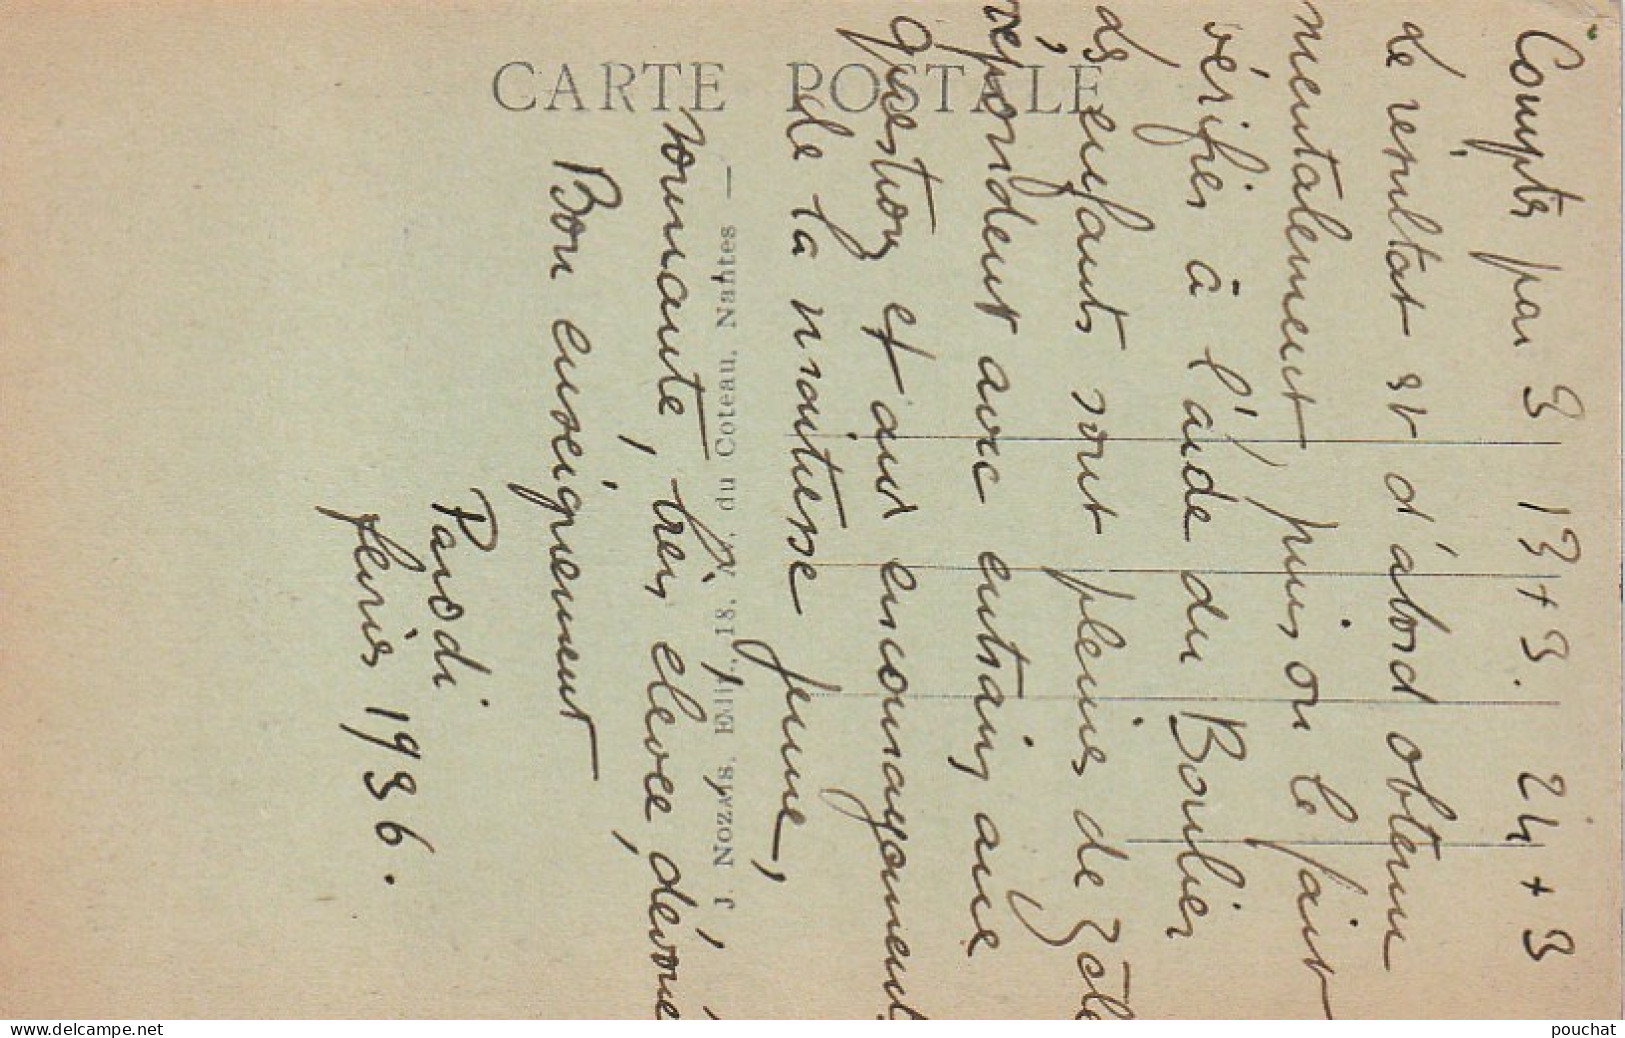 CARTE POSTALE
J. NOZAIS, Edit., 18, r. du Coteau, Nantes —
Compter par 3 13+3. 24+3
Le resultat est d'abord obtenu
mentalement, puis on le fait
vérifier à l'aide du Boulier
Les enfants sont pleins de zèle
répondent avec entrain, aux
question et aux encouragement
de la maitresse jeune,
souriante, très élevée, dévouée
Bon enseignement
Parodi
février 1936.
www.delcampe.net
pouchat